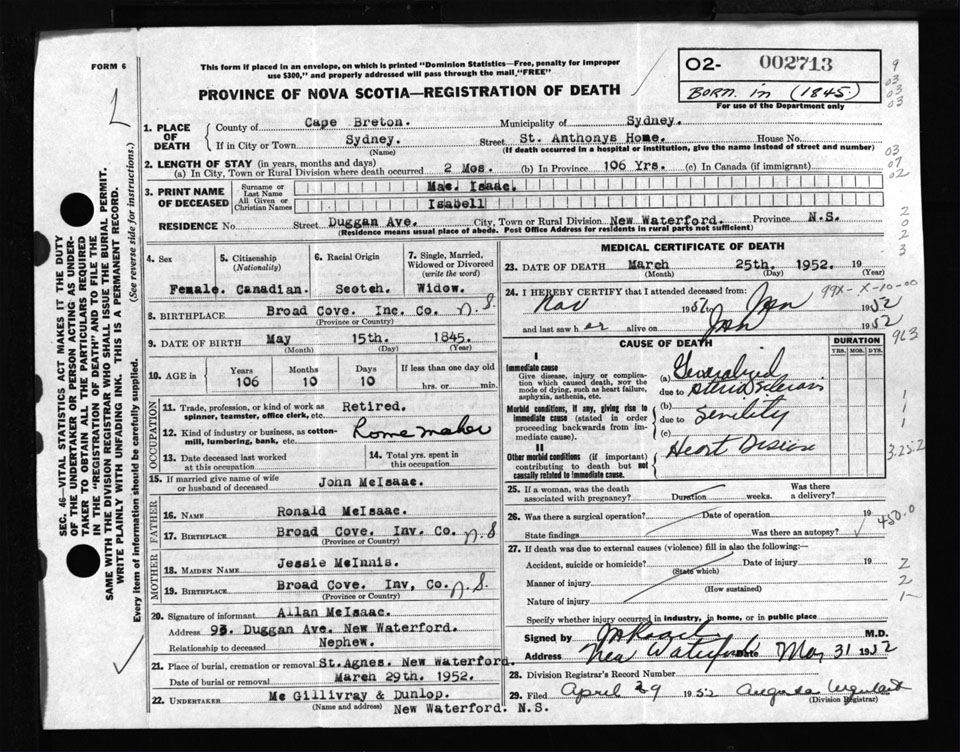 FORM 6
This form if placed in an envelope, on which is printed "Dominion Statistics—Free, penalty for improper
use $300," and properly addressed will pass through the mail, "FREE"
PROVINCE OF NOVA SCOTIA—REGISTRATION OF DEATH
02- 002713
Born in (1845)
For use of the Department only
9
03
03
03
03
07
02
2
0
2
2
3
SEC. 46—VITAL STATISTICS ACT MAKES IT THE DUTY
OF THE UNDERTAKER OR PERSON ACTING AS UNDER-
TAKER TO OBTAIN ALL THE PARTICULARS REQUIRED
IN THE "REGISTRATION OF DEATH" AND TO FILE THE
SAME WITH THE DIVISION REGISTRAR WHO SHALL ISSUE THE BURIAL PERMIT.
WRITE PLAINLY WITH UNFADING INK. THIS IS A PERMANENT RECORD.
Every item of information should be carefully supplied. (See reverse side for instructions.)
1. PLACE OF DEATH
County of Cape Breton. Municipality of Sydney.
If in City or Town Sydney. Street St. Anthonys Home. House No.
(Name) (If death occurred in a hospital or institution, give the name instead of street and number)
2. LENGTH OF STAY (in years, months and days)
(a) In City, Town or Rural Division where death occurred 2 Mos. (b) In Province 106 Yrs. (c) In Canada (if immigrant)
3. PRINT NAME OF DECEASED
Surname or Last Name Mac. Isaac.
All Given or Christian Names Isabell
RESIDENCE No. Street Duggan Ave. City, Town or Rural Division New Waterford. Province N.S.
(Residence means usual place of abode. Post Office Address for residents in rural parts not sufficient)
4. Sex 5. Citizenship (Nationality) 6. Racial Origin 7. Single, Married, Widowed or Divorced (write the word)
Female. Canadian. Scotch. Widow.
8. BIRTHPLACE Broad Cove. Inc. Co. N.S.
(Province or Country)
9. DATE OF BIRTH May 15th. 1845.
(Month) (Day) (Year)
10. AGE in Years Months Days If less than one day old
106 10 10 hrs. or min.
OCCUPATION
11. Trade, profession, or kind of work as spinner, teamster, office clerk, etc. Retired.
12. Kind of industry or business, as cotton-mill, lumbering, bank, etc. Home maker
13. Date deceased last worked at this occupation
14. Total yrs. spent in this occupation
15. If married give name of wife or husband of deceased John McIsaac.
FATHER
16. NAME Ronald McIsaac.
17. BIRTHPLACE Broad Cove. Inv. Co. N.S
(Province or Country)
MOTHER
18. MAIDEN NAME Jessie McInnis.
19. BIRTHPLACE Broad Cove. Inv, Co. N.S.
(Province or Country)
20. Signature of informant Allan McIsaac.
Address 95. Duggan Ave. New Waterford.
Relationship to deceased Nephew.
21. Place of burial, cremation or removal St. Agnes. New Waterford.
Date of burial or removal March 29th. 1952.
22. UNDERTAKER Mc Gillivray & Dunlop.
(Name and address) New Waterford. N.S.
MEDICAL CERTIFICATE OF DEATH
23. DATE OF DEATH March 25th. 1952. 19
(Month) (Day) (Year)
24. I HEREBY CERTIFY that I attended deceased from: 99X-X-10-00
Nov 195 to Jan 1952
and last saw her alive on Jan 1952
963
CAUSE OF DEATH DURATION
YRS. MOS. DYS.
I
Immediate cause
Give disease, injury or complication which caused death, NOT the mode of dying, such as heart failure, asphyxia, asthenia, etc.
(a) Generalized
due to
Morbid conditions, if any, giving rise to immediate cause (stated in order proceeding backwards from immediate cause).
(b)
due to Senility
(c)
II
Other morbid conditions (if important) contributing to death but not causally related to immediate cause.
Heart Disease
1
1
1
3.25.2
25. If a woman, was the death associated with pregnancy? Duration weeks. Was there a delivery?
26. Was there a surgical operation? Date of operation 19
State findings Was there an autopsy?
450.0
27. If death was due to external causes (violence) fill in also the following:—
Accident, suicide or homicide? Date of injury 19
(State which)
Manner of injury
(How sustained)
Nature of injury
2
2
1
Specify whether injury occurred in industry, in home, or in public place
Signed by M.D.
Address New Waterford Date May 31 1952
28. Division Registrar's Record Number
29. Filed April 29 1952
(Division Registrar)